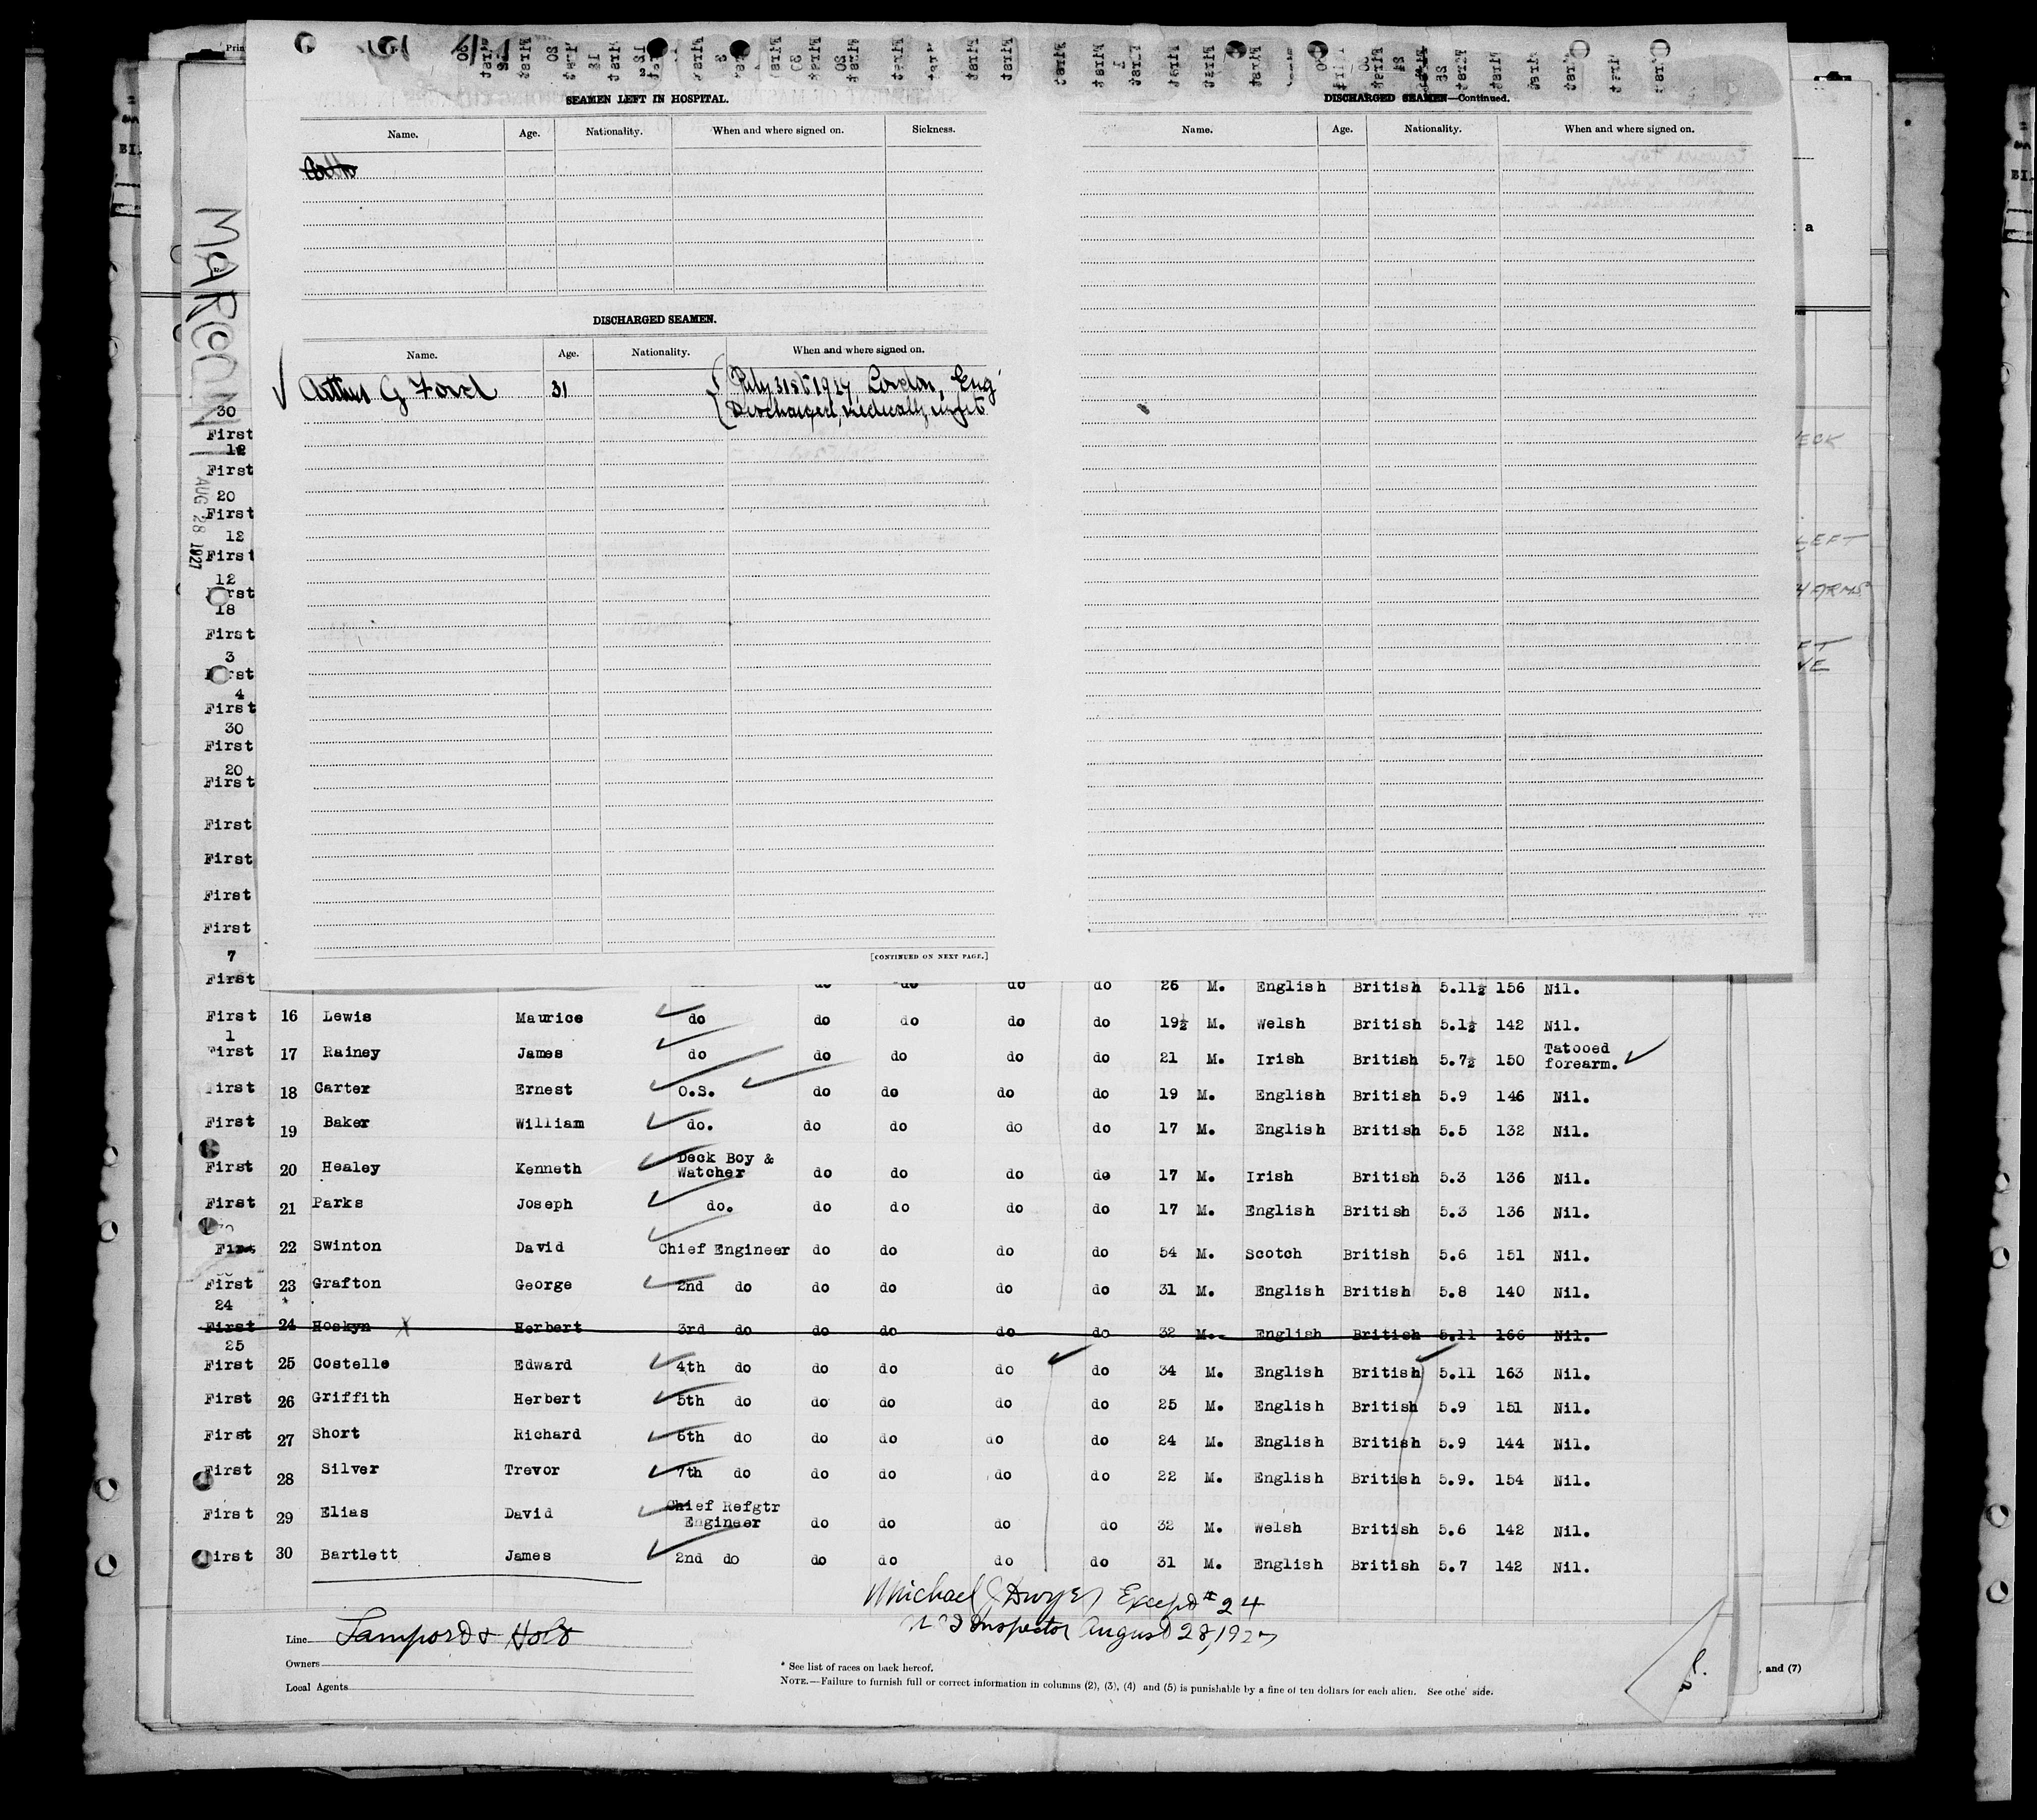 SEAMEN LEFT IN HOSPITAL.
Name. Age. Nationality. When and where signed on. Sickness.
DISCHARGED SEAMEN.
Name. Age. Nationality. When and where signed on.
Arthur G Ford 31 July 31st 1927, London, Eng
Discharged, medically unfit
[CONTINUED ON NEXT PAGE.]
DISCHARGED SEAMEN—Continued.
Name. Age. Nationality. When and where signed on.
MARCONI
AUG 28 1927
30
First
12
First
20
First
12
First
12
First
18
First
3
First
4
First
30
First
20
First
First
First
First
First
7
First do do do do 26 M. English British 5.11½ 156 Nil.
First 16 Lewis Maurice do do do do do 19½ M. Welsh British 5.1½ 142 Nil.
1
First 17 Rainey James do do do do do 21 M. Irish British 5.7½ 150 Tatooed forearm.
First 18 Carter Ernest O.S. do do do do 19 M. English British 5.9 146 Nil.
First 19 Baker William do. do do do do 17 M. English British 5.5 132 Nil.
First 20 Healey Kenneth Deck Boy & Watcher do do do do 17 M. Irish British 5.3 136 Nil.
First 21 Parks Joseph do. do do do do 17 M. English British 5.3 136 Nil.
First 22 Swinton David Chief Engineer do do do do 54 M. Scotch British 5.6 151 Nil.
First 23 Grafton George 2nd do do do do do 31 M. English British 5.8 140 Nil.
24
First 24 Hoskyn X Herbert 3rd do do do do do 32 M. English British 5.11 166 Nil.
25
First 25 Costelle Edward 4th do do do do do 34 M. English British 5.11 163 Nil.
First 26 Griffith Herbert 5th do do do do do 25 M. English British 5.9 151 Nil.
First 27 Short Richard 6th do do do do do 24 M. English British 5.9 144 Nil.
First 28 Silver Trevor 7th do do do do do 22 M. English British 5.9. 154 Nil.
First 29 Elias David Chief Refgtr Engineer do do do do 32 M. Welsh British 5.6 142 Nil.
First 30 Bartlett James 2nd do do do do do 31 M. English British 5.7 142 Nil.
Michael J Dwyer Except #24
Inspector August 28, 1927
Line Lamport & Holt
Owners
Local Agents
* See list of races on back hereof.
NOTE.—Failure to furnish full or correct information in columns (2), (3), (4) and (5) is punishable by a fine of ten dollars for each alien. See other side.
, and (7)